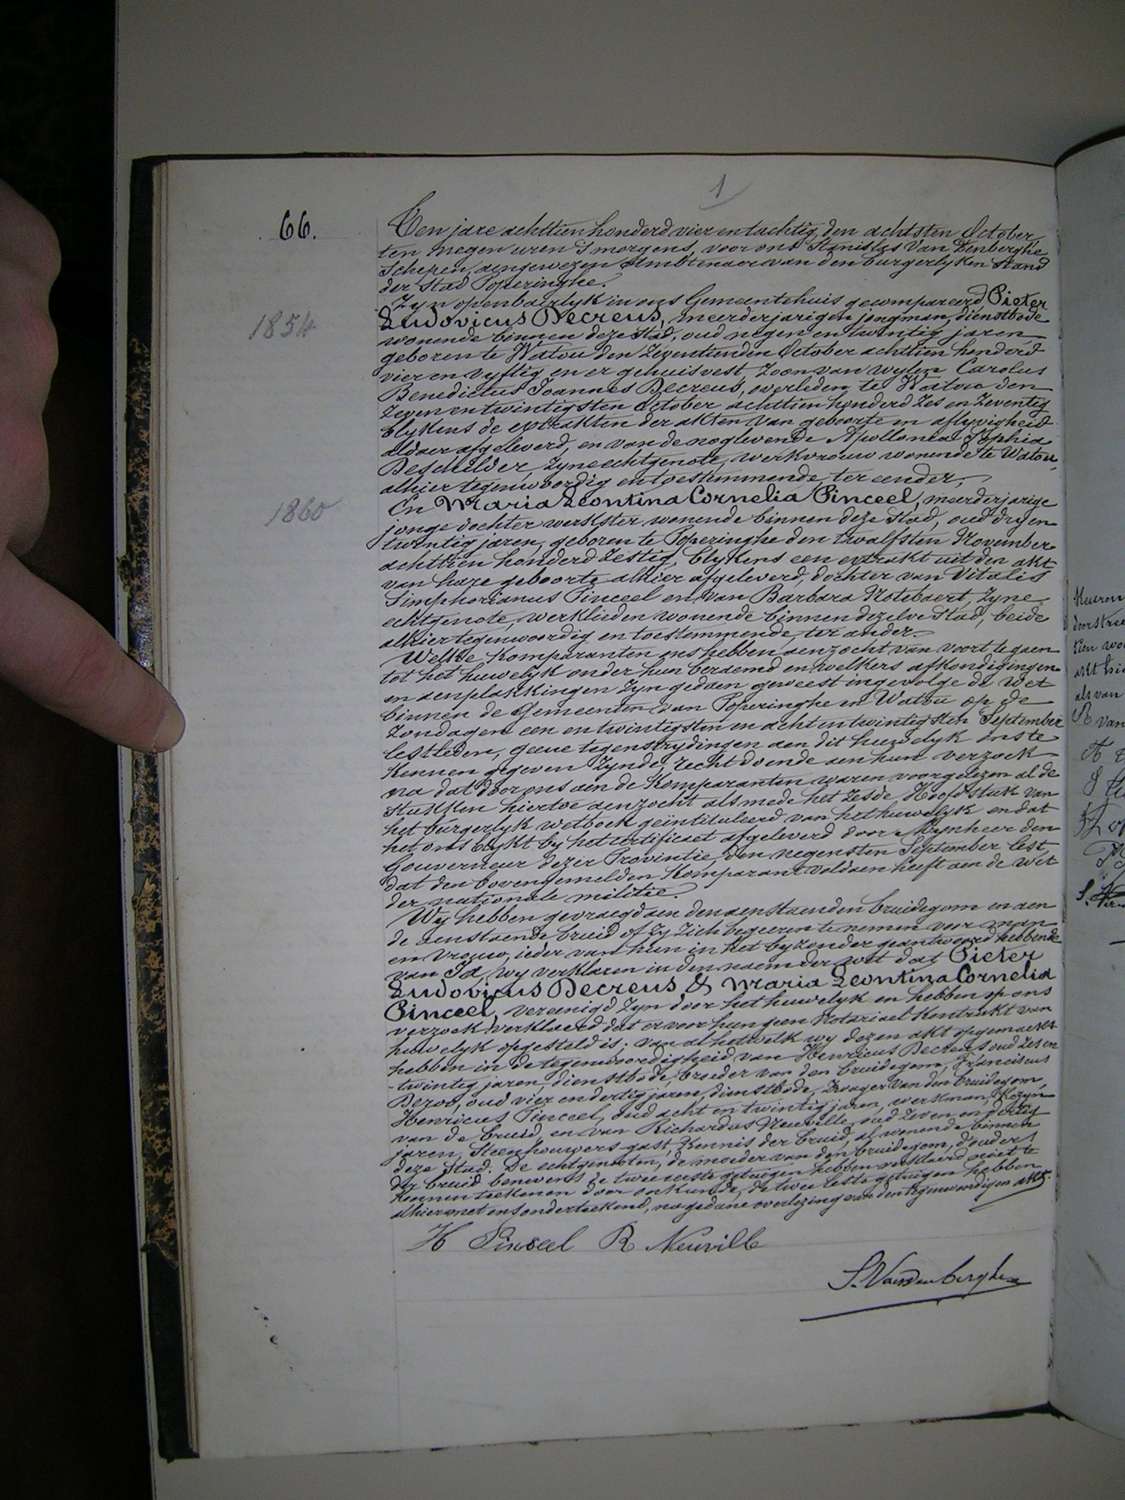 1
66.
Ten jare achttien honderd vier en tachtig, den achtsten October
ten negen uren 's morgens, voor ons Stanislas Van Denberghe
Schepen, aengewezen Ambtenaer van den burgerlyken Stand
der Stad Poperinghe.
Zyn openbaerlyk in ons Gemeentehuis gecompareerd Pieter
1854
Ludovicus Decreus, meerderjarigen jongman, dienstbode
wonende binnen deze Stad, oud negen en twintig jaren
geboren te Watou den zeventienden October achttien honderd
vier en vyftig en er gehuisvest zoon van wylen Carolus
Benedictus Joannes Decreus, overleden te Watou den
zeven en twintigsten October achttien honderd zes en zeventig
blykens de extrakten der akten van geboorte en aflyvigheid
aldaer afgeleverd, en van de noglevende Apollonia Sophia
Deschilder, zyne echtgenote, werkvrouw wonende te Watou,
alhier tegenwoordig en toestemmende, ter eender,
1860
En Maria Leontina Cornelia Pinceel, meerderjarige
jonge dochter werkster, wonende binnen deze Stad, oud dry en
twintig jaren, geboren te Poperinghe den twalfsten November
achttien honderd zestig, blykens een extrakt uit den akt
van hare geboorte alhier afgeleverd, dochter van Vitalis
Simphorianus Pinceel en van Barbara Notebaert, zyne
echtgenote, werklieden wonende binnen dezelve Stad, beide
alhier tegenwoordig en toestemmende, ter ander.
Welke komparanten ons hebben aenzocht van voort te gaen
tot het huwelyk onder hun beraemd en welkers afkondigingen
en aenplakkingen zyn gedaen geweest ingevolge de wet
binnen de Gemeenten van Poperinghe en Watou op de
zondagen een en twintigsten en acht en twintigsten September
lestleden, geene tegenstrydingen aen dit huwelyk ons te
kennen gegeven zynde, recht doende aen hun verzoek
na dat door ons aen de komparanten waren voorgelezen al de
stukken hiertoe aenzocht alsmede het zesde Hoofdstuk van
het burgerlyk wetboek geintituleerd van het huwelyk en dat
het ons blykt by het certificaet afgeleverd door Mynheer den
Gouverneur dezer Provintie, den negensten September lest
dat den bovengemelden komparant voldaen heeft aen de wet
der nationale militie.
Wy hebben gevraegd aen den aenstaenden bruidegom en aen
de aenstaende bruid of zy zich begeeren te nemen voor man
en vrouw, ieder van hun in het byzonder geantwoord hebbende
van Ja, wy verklaren in den naem der wet dat Pieter
Ludovicus Decreus & Maria Leontina Cornelia
Pinceel, vereenigd zyn door het huwelyk en hebben op ons
verzoek verklaerd dat er voor hun geen Notariael kontrakt van
huwelyk opgesteld is; van al hetwelk wy dezen akt opgemaekt
hebben in de tegenwoordigheid van Henricus Decreus oud zes en
twintig jaren, dienstbode, broeder van den bruidegom, Franciscus
Dezoo, oud vier en dertig jaren, dienstbode, zwager van den bruidegom,
Henricus Pinceel, oud acht en twintig jaren, werkman, Kozyn
van de bruid en van Richardus Neuville, oud zeven en dertig
jaren, steenhouwers gast, kennis der bruid, al wonende binnen
deze Stad. De echtgenoten, de moeder van den bruidegom, d'ouders
der bruid benevens de twee eerste getuigen hebben verklaerd niet te
kennen teekenen door onkunde, de twee leste getuigen hebben
alhier met ons onderteekend, na gedane overlezing van den tegenwoordigen akt.
H Pinceel R Neuville
S. Vandenberghe